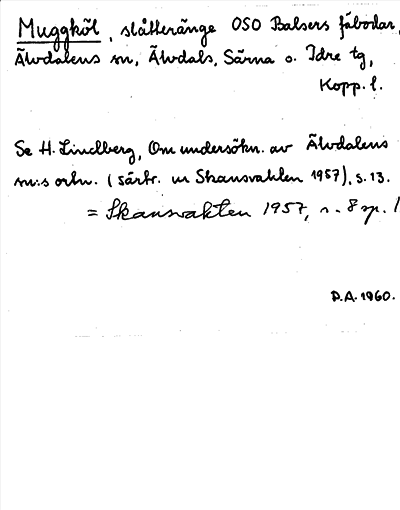 Muggköl, slåtteränge OSO Balsers fäbodar,
Älvdalens sn, Älvdals, Särna o. Idre tg,
Kopp. l.
Se H. Lindberg, Om undersökn. av Älvdalens
sn:s ortn. (särtr. ur Skansvakten 1957), s. 13.
= Skansvakten 1957, s. 8 sp. 1
D.A. 1960.